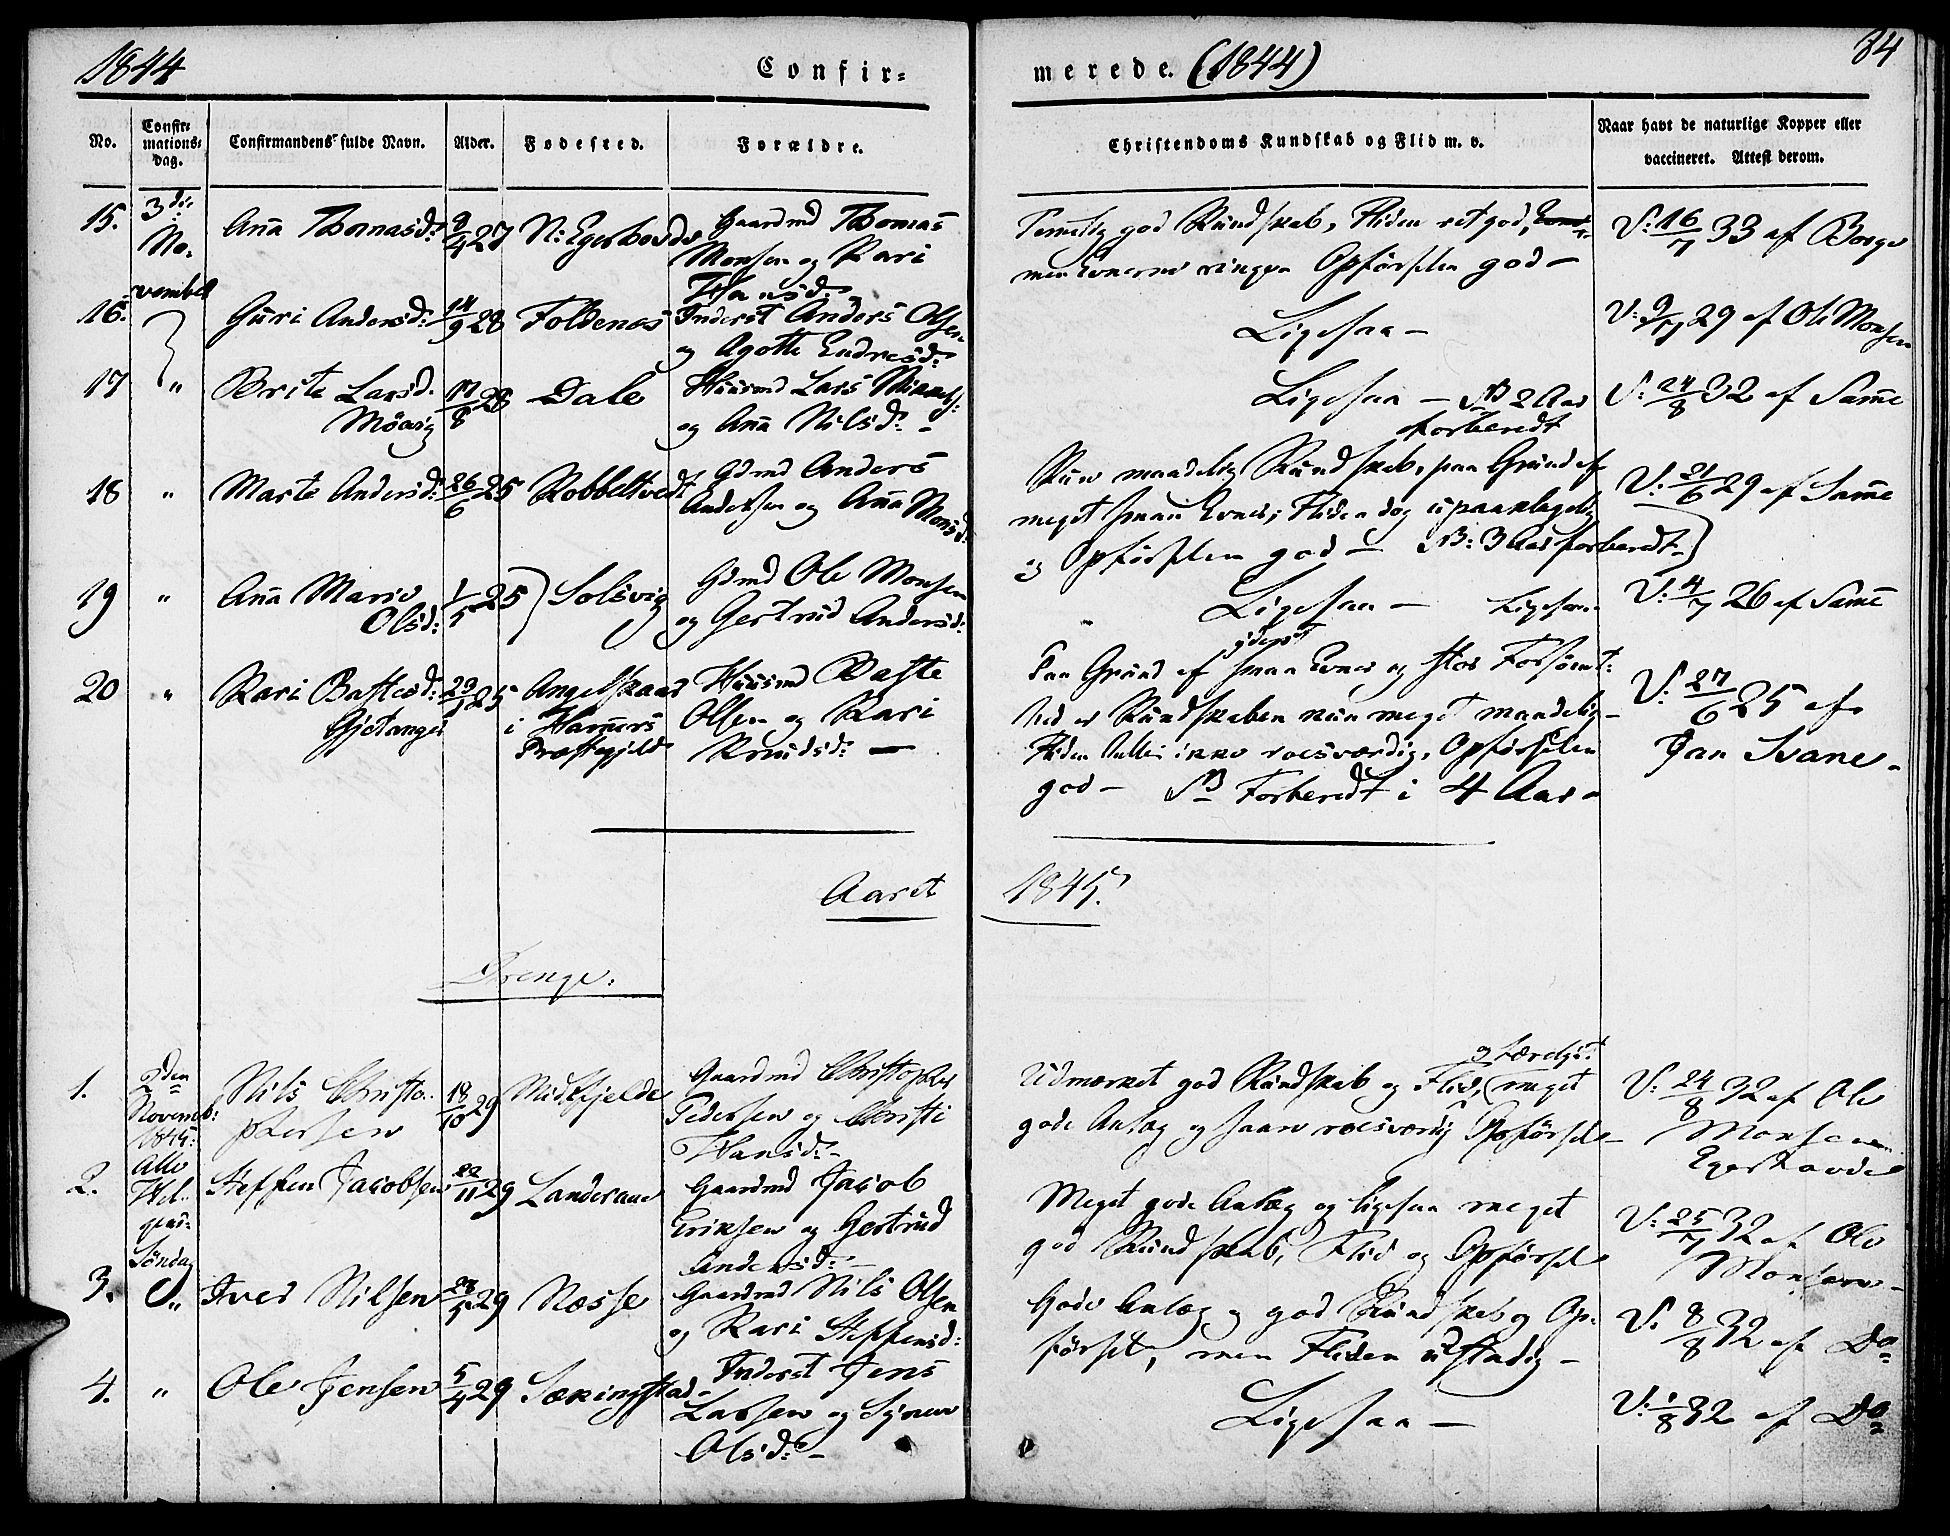 1844
Confir=
merede. (1844)
84
No.
Confir=
mations=
dag.
Confirmandens fulde Navn.
Alder.
Fødested.
Forældre.
Christendoms Kundskab og Flid m. v.
Naar havt de naturlige Kopper eller
vaccineret. Attest derom.
15.
3die
No-
vember
Ana Thomasd:
9/4 27
N: Egeshovde
Gaardmd Thomas
Monsen og Kari
Hansd:
Temelig god Kundskab, Fliden ret god,
men Evnerne ringe. Opførselen god –
V: 16/7 33 af Borge
16.
Guri Andersd:
14/9 28
Foldenæs
Inderst Anders Olsen
og Agotte Endresd:
Ligesaa –
V: 9/7 29 af Ole Monsen
17
"
Brite Larsd.
Møvig
17/8 28
Dale
Huusmd Lars
og Ana Nilsd: –
Ligesaa – NB 2 Aar
forberedt
V: 24/8 32 af Same
18
"
Marte Andersd:
26/6 25
Kobbeltvedt
Gdmd Anders
Andersen og Ana Monsd:
Kun maadelig Kundskab, paa Grund af
meget smaa Evner; Fliden dog upaaklagelig
og Opførselen god – NB: 3 Aar forberedt –
V: 21/6 29 af Same
19
"
Ana Marie
Olsd:
1/5 25
Solsvig
Gdmd Ole Monsen
og Gertrud Andersd:
Ligesaa – Ligesaa
V: 4/7 26 af Same
20
"
Kari Bastesd:
Gjetanger
29/5 25
Angelskaar
i Hamers
Præstegjeld
Huusmd Baste
Olsen og Kari
Knudsd: –
yderst
Paa Grund af smaa Evner og stor Forsømt-
hed er Kundskaben kun meget maadelig –
Fliden heller ikke roesværdig, Opførselen
god – NB Forberedt i 4 Aar –
V: 27/6 25 af
Jan Svane –
Aaret
1845.
Drenge:
1.
2den
Novemb:
1845:
Nils Christo-
phersen
18/10 29
Midtfjeld
Gaardmd Christopher
Pedersen og Christi
Hansd: –
og Færdigh:
Udmærket god Kundskab og Flid, meget
gode Anlæg og saare roesværdig Opførsel –
V: 24/8 32 af Ole
Monsen
Egeshovde
2.
Alle
Hel-
gens
Søndag
Steffen Jacobsen
22/11 29
Landerane
Gaardmd Jacob
Eriksen og Gertrud
Andersd: –
Meget gode Anlæg og ligesaa meget
god Kundskab, Flid og Opførsel
V: 25/7 32 af Ole
Monsen –
3.
"
Iver Nilsen
23/5 29
Næsse
Gaardmd Nils Olsen
og Kari Steffensd:
Gode Anlæg og god Kundskab og Op-
førsel, men Fliden ustadig –
V: 8/8 32 af Do
4.
"
Ole Jensen
5/4 29
Sækingstad
Inderst Jens
Larsen og Synove
Olsd: –
Ligesaa –
V: 1/8 32 af Do